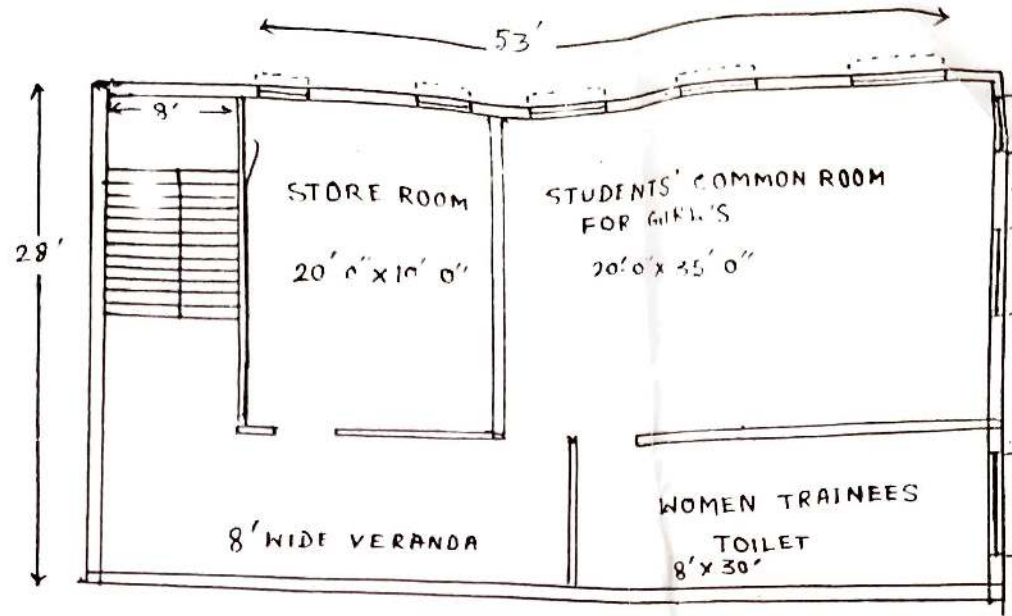 53'
8'
28'
STORE ROOM
20' 0" x 10' 0"
STUDENTS' COMMON ROOM
FOR GIRL'S
20' 0" x 35' 0"
8' WIDE VERANDA
WOMEN TRAINEES
TOILET
8' x 30'